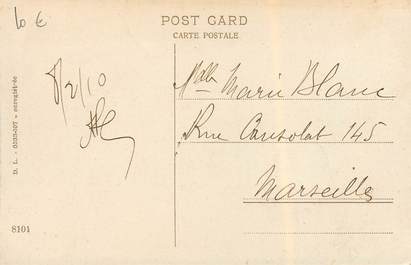 10 €
POST CARD
CARTE POSTALE
8/2/10
Mlle Marie Blanc
Rue Consolat 145
Marseille
8101